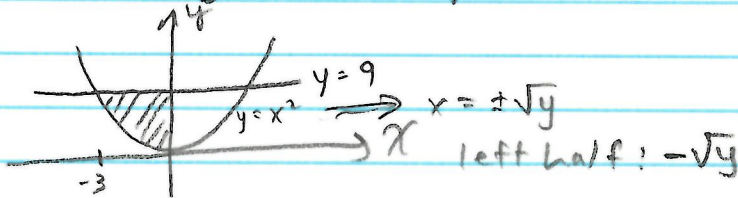 y
y = 9
y = x²
→ x = ±√y
x
left half: -√y
-3